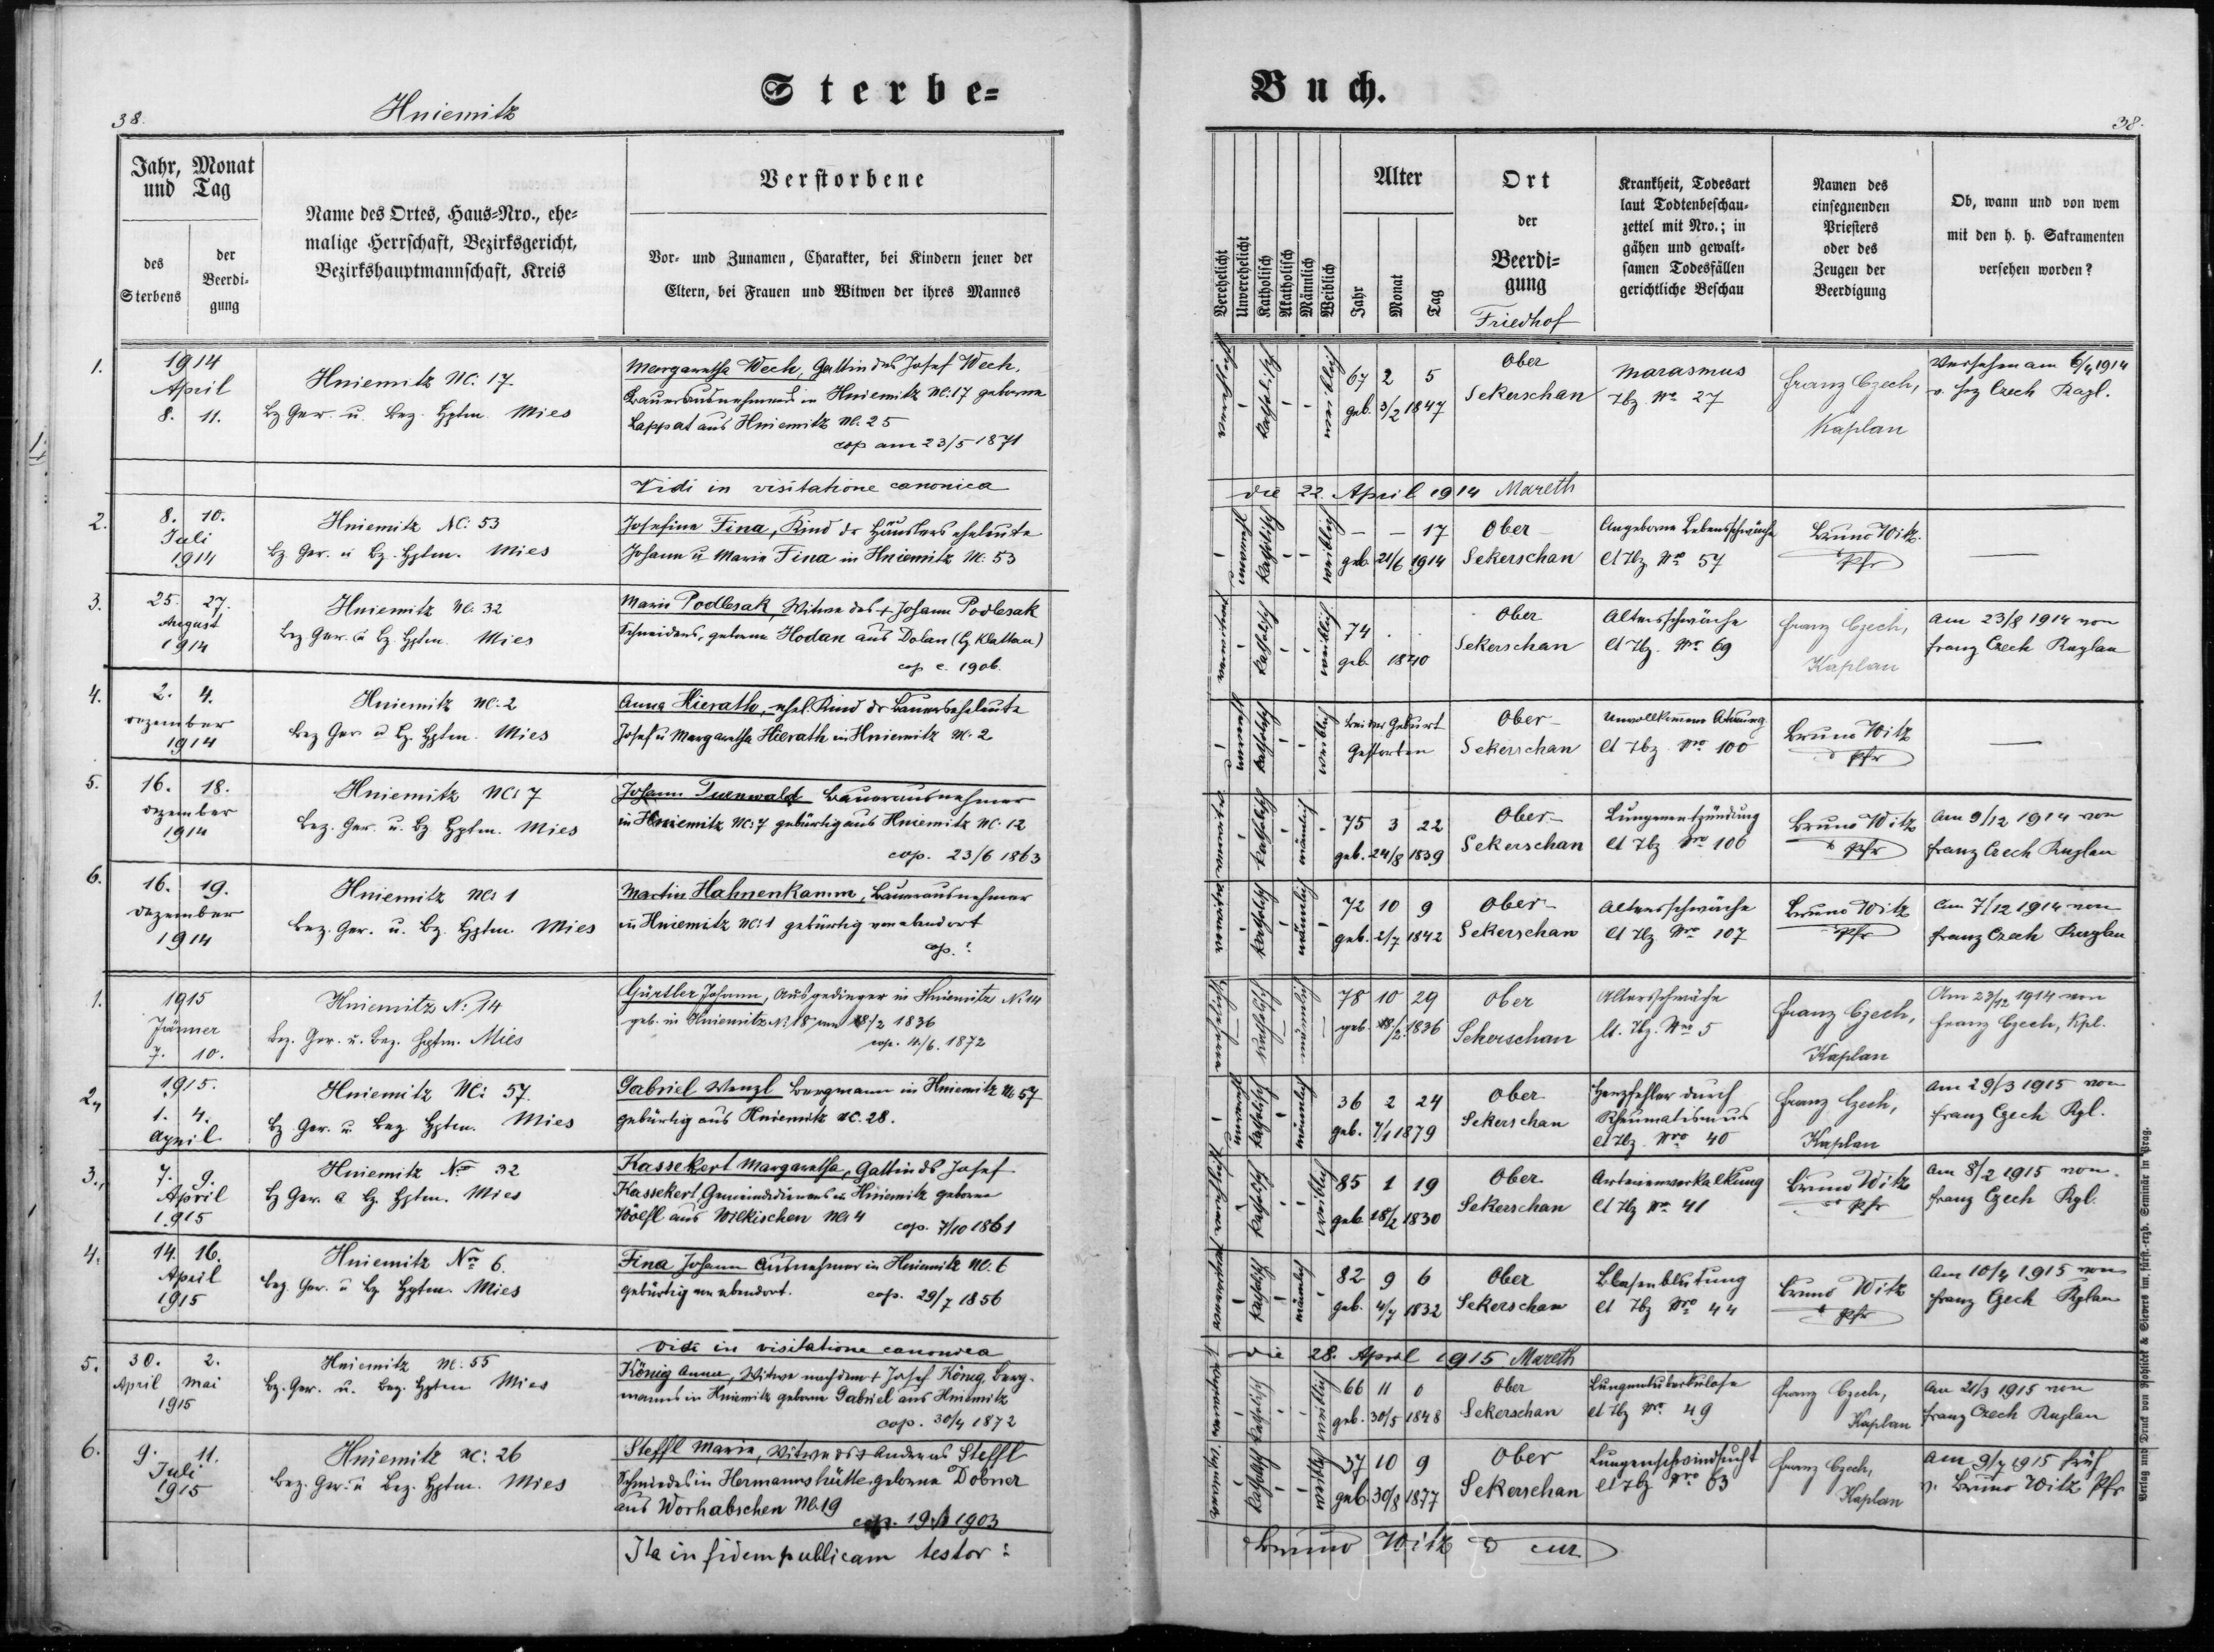 Sterbe-
38.
Hniemitz
Jahr, Monat
und Tag
des
Sterbens
der
Beerdi-
gung
Name des Ortes, Haus-Nro., ehe-
malige Herrschaft, Bezirksgericht,
Bezirkshauptmannschaft, Kreis
Verstorbene
Vor- und Zunamen, Charakter, bei Kindern jener der
Eltern, bei Frauen und Witwen der ihres Mannes
1.
1914
April
8. 11.
Hniemitz NC. 17.
Bz Ger. u. Bez. Hptm. Mies
Margaretha Wech, Gattin des Josef Wech,
Bauerausnehmers in Hniemitz NC. 17 geborne
Lappat aus Hniemitz NC. 25
cop am 23/5 1871
Vidi in visitatione canonica
2.
8. 10.
Juli
1914
Hniemitz NC: 53
Bz. Ger. u Bz. Hptm. Mies
Josefina Fina, Kind der Häuslerseheleute
Johann u Maria Fina in Hniemitz NC. 53
3.
25. 27.
August
1914
Hniemitz NC. 32
Bez Ger. u Bz. Hptm. Mies
Marie Podlesak, Witwe des + Johann Podlesak
Schneiders, geborne Hodan aus Dolan (Bz Klattau)
cop c. 1906.
4.
2. 4.
Dezember
1914
Hniemitz NC. 2
Bez Ger u Bz. Hptm. Mies
Anna Hierath, ehel. Kind der Bauerseheleute
Josef u Margaretha Hierath in Hniemitz NC. 2
5.
16. 18.
Dezember
1914
Hniemitz NC: 7
Bez. Ger. u. Bz. Hptm. Mies
Johann Tuenwald Bauerausnehmer
in Hniemitz NC: 7 gebürtig aus Hniemitz NC. 12
cop. 23/6 1863
6.
16. 19.
Dezember
1914
Hniemitz NC: 1
Bez. Ger. u. Bz. Hptm. Mies
Martin Hahnenkamm, Bauerausnehmer
in Hniemitz NC: 1 gebürtig von ebendort
cop. ?
1.
1915
Jänner
7. 10.
Hniemitz N: 14
Bez. Ger. u. Bez. Hptm. Mies
Gürtler Johann, Ausgedinger in Hniemitz N: 14
geb. in Hniemitz N: 18 am 8/2 1836
cop. 11/6. 1872
2.
1915.
1. 4.
April
Hniemitz NC: 57.
Bz Ger. u. Bez Hptm. Mies
Gabriel Wenzl Bergmann in Hniemitz NC 57
gebürtig aus Hniemitz NC. 28.
3.
7. 9.
April
1915
Hniemitz No 32
Bz Ger. u Bz. Hptm. Mies
Kassekert Margaretha, Gattin des Josef
Kassekert, Gemeindedieners in Hniemitz geborne
Wölfl aus Wilkischen NC: 4 cop. 7/10 1861
4.
14. 16.
April
1915
Hniemitz Nro 6.
Bez. Ger. u Bz Hptm. Mies
Fina Johann Ausnehmer in Hniemitz NC. 6
gebürtig von ebendort. cop. 29/7 1856
Vidi in visitatione canonica
5.
30. 2.
April Mai
1915
Hniemitz NC: 55
Bz. Ger. u. Bez. Hptm Mies
König Anna, Witwe nach dem + Josef König, Berg-
manns in Hniemitz geborne Gabriel aus Hniemitz
cop. 30/4 1872
6.
9. 11.
Juli
1915
Hniemitz NC: 26
Bez. Ger. u Bez. Hptm. Mies
Steffl Maria, Witwe des + Andreas Steffl
Schmiedes in Hermannshütte, geborne Dobner
aus Worhabschen NC. 19
cop. 1903
Ita in fidem publicam testor:
Buch.
38.
Verehelicht
Unverehelicht
Katholisch
Akatholisch
Männlich
Weiblich
Alter
Jahr
Monat
Tag
Ort
der
Beerdi-
gung
Friedhof
Krankheit, Todesart
laut Todtenbeschau-
zettel mit Nro.; in
gähen und gewalt-
samen Todesfällen
gerichtliche Beschau
Namen des
einsegnenden
Priesters
oder des
Zeugen der
Beerdigung
Ob, wann und von wem
mit den h. h. Sakramenten
versehen worden?
katholisch
weiblich
67 2 5
geb. 3/2 1847
Ober
Sekerschan
Marasmus
Tbz No 27
Franz Czech,
Kaplan
Versehen am 6/4 1914
v. Frz Czech Kapl.
die 22. April 1914 Mareth
katholisch
weiblich
– – 17
geb. 21/6 1914
Ober-
Sekerschan
Angeborne Lebensschwäche
lt Tbz No 57
Bruno Witz.
Pfr
—
katholisch
weiblich
74
geb. 1840
Ober
Sekerschan
Altersschwäche
lt Tbz. Nro 69
Franz Czech,
Kaplan
Am 23/8 1914 von
Franz Czech Kaplan
katholisch
weiblich
Bei der Geburt
Gestorben
Ober-
Sekerschan
Unvollkommene Atmung
lt Tbz Nro 100
Bruno Witz
Pfr
—
katholisch
männlich
75 3 22
geb. 24/8 1839
Ober-
Sekerschan
Lungenentzündung
lt Tbz Nro 106
Bruno Witz
Pfr
Am 9/12 1914 von
Franz Czech Kaplan
katholisch
männlich
72 10 9
geb. 2/7 1842
Ober-
Sekerschan
Altersschwäche
lt Tbz Nro 107
Bruno Witz
Pfr
Am 7/12 1914 von
Franz Czech Kaplan
katholisch
männlich
78 10 29
geb. 8/2. 1836
Ober
Sekerschan
Altersschwäche
lt. Tbz. Nro 5
Franz Czech,
Kaplan
Am 23/12 1914 von
Franz Czech, Kpl.
katholisch
männlich
36 2 24
geb. 7/1 1879
Ober
Sekerschan
Herzfehler durch
Rheumatismus
lt Tbz. Nro 40
Franz Czech,
Kaplan
Am 29/3 1915 von
Franz Czech Kpl.
katholisch
weiblich
85 1 19
geb 18/2 1830
Ober
Sekerschan
Arterienverkalkung
lt Tbz No 41
Bruno Witz
Pfr
Am 8/2 1915 von
Franz Czech Kpl.
katholisch
männlich
82 9 6
geb. 4/7 1832
Ober
Sekerschan
Blasenblutung
lt Tbz Nro 44
Bruno Witz
Pfr
Am 10/4 1915 von
Franz Czech Kplan
die 28. April 1915 Mareth
katholisch
weiblich
66 11 0
geb. 30/5 1848
Ober
Sekerschan
Lungentuberkulose
lt Tbz Nro 49
Franz Czech,
Kaplan
Am 21/3 1915 von
Franz Czech Kaplan
katholisch
weiblich
37 10 9
geb. 30/8 1877
Ober
Sekerschan
Lungenschwindsucht
lt Tbz Nro 63
Franz Czech,
Kaplan
Am 9/7 1915 früh
v. Bruno Witz Pfr
Bruno Witz
Verlag und Druck von Rohlíček & Sievers im fürst.-erzb. Seminär in Prag.